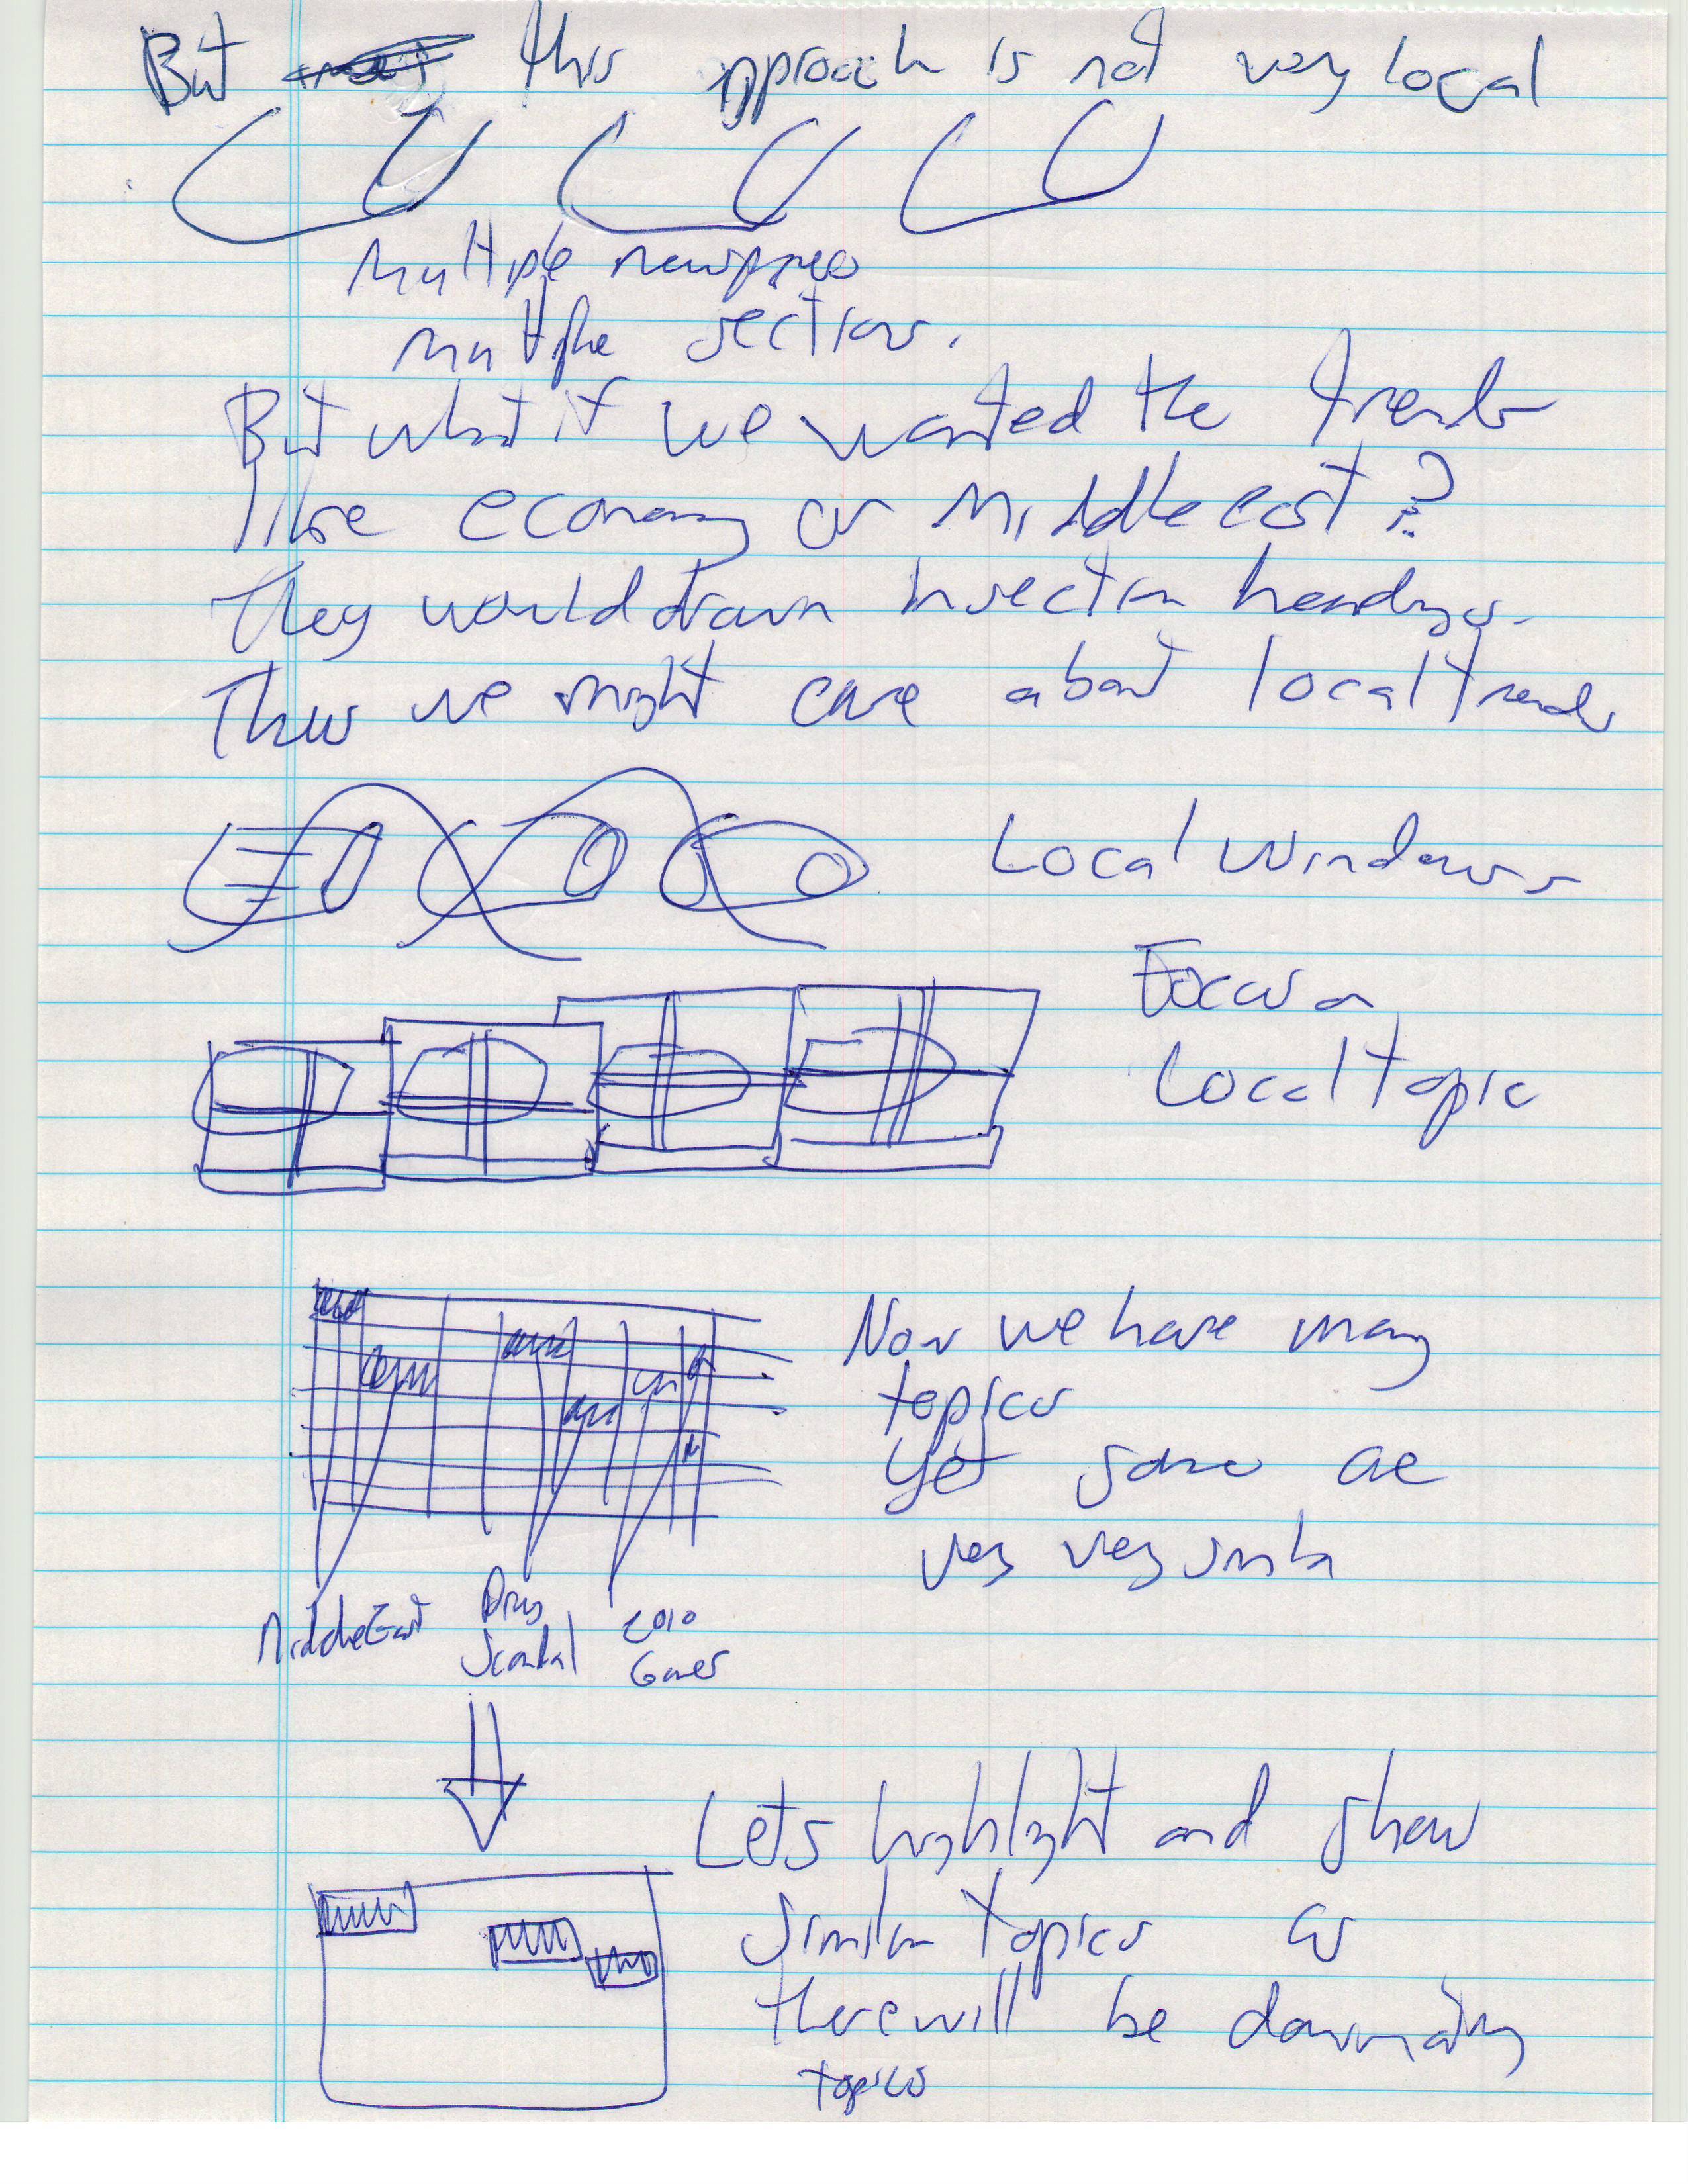 But this approach is not very local
Multiple newspapers
multiple sections.
But what if we wanted the trends
like economy or Middle east?
They would drown in section headings.
Thus we might care about local trends
Local Windows
Focus on
Local Topic
Now we have many
topics
Yet some are
very very similar
Middle East
Drug
Scandal
2010
Games
Lets highlight and show
Similar Topics as
there will be dominating
topics